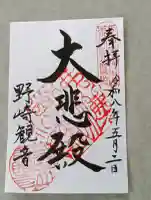 奉拝
令和八年五月二日
大悲殿
野崎観音